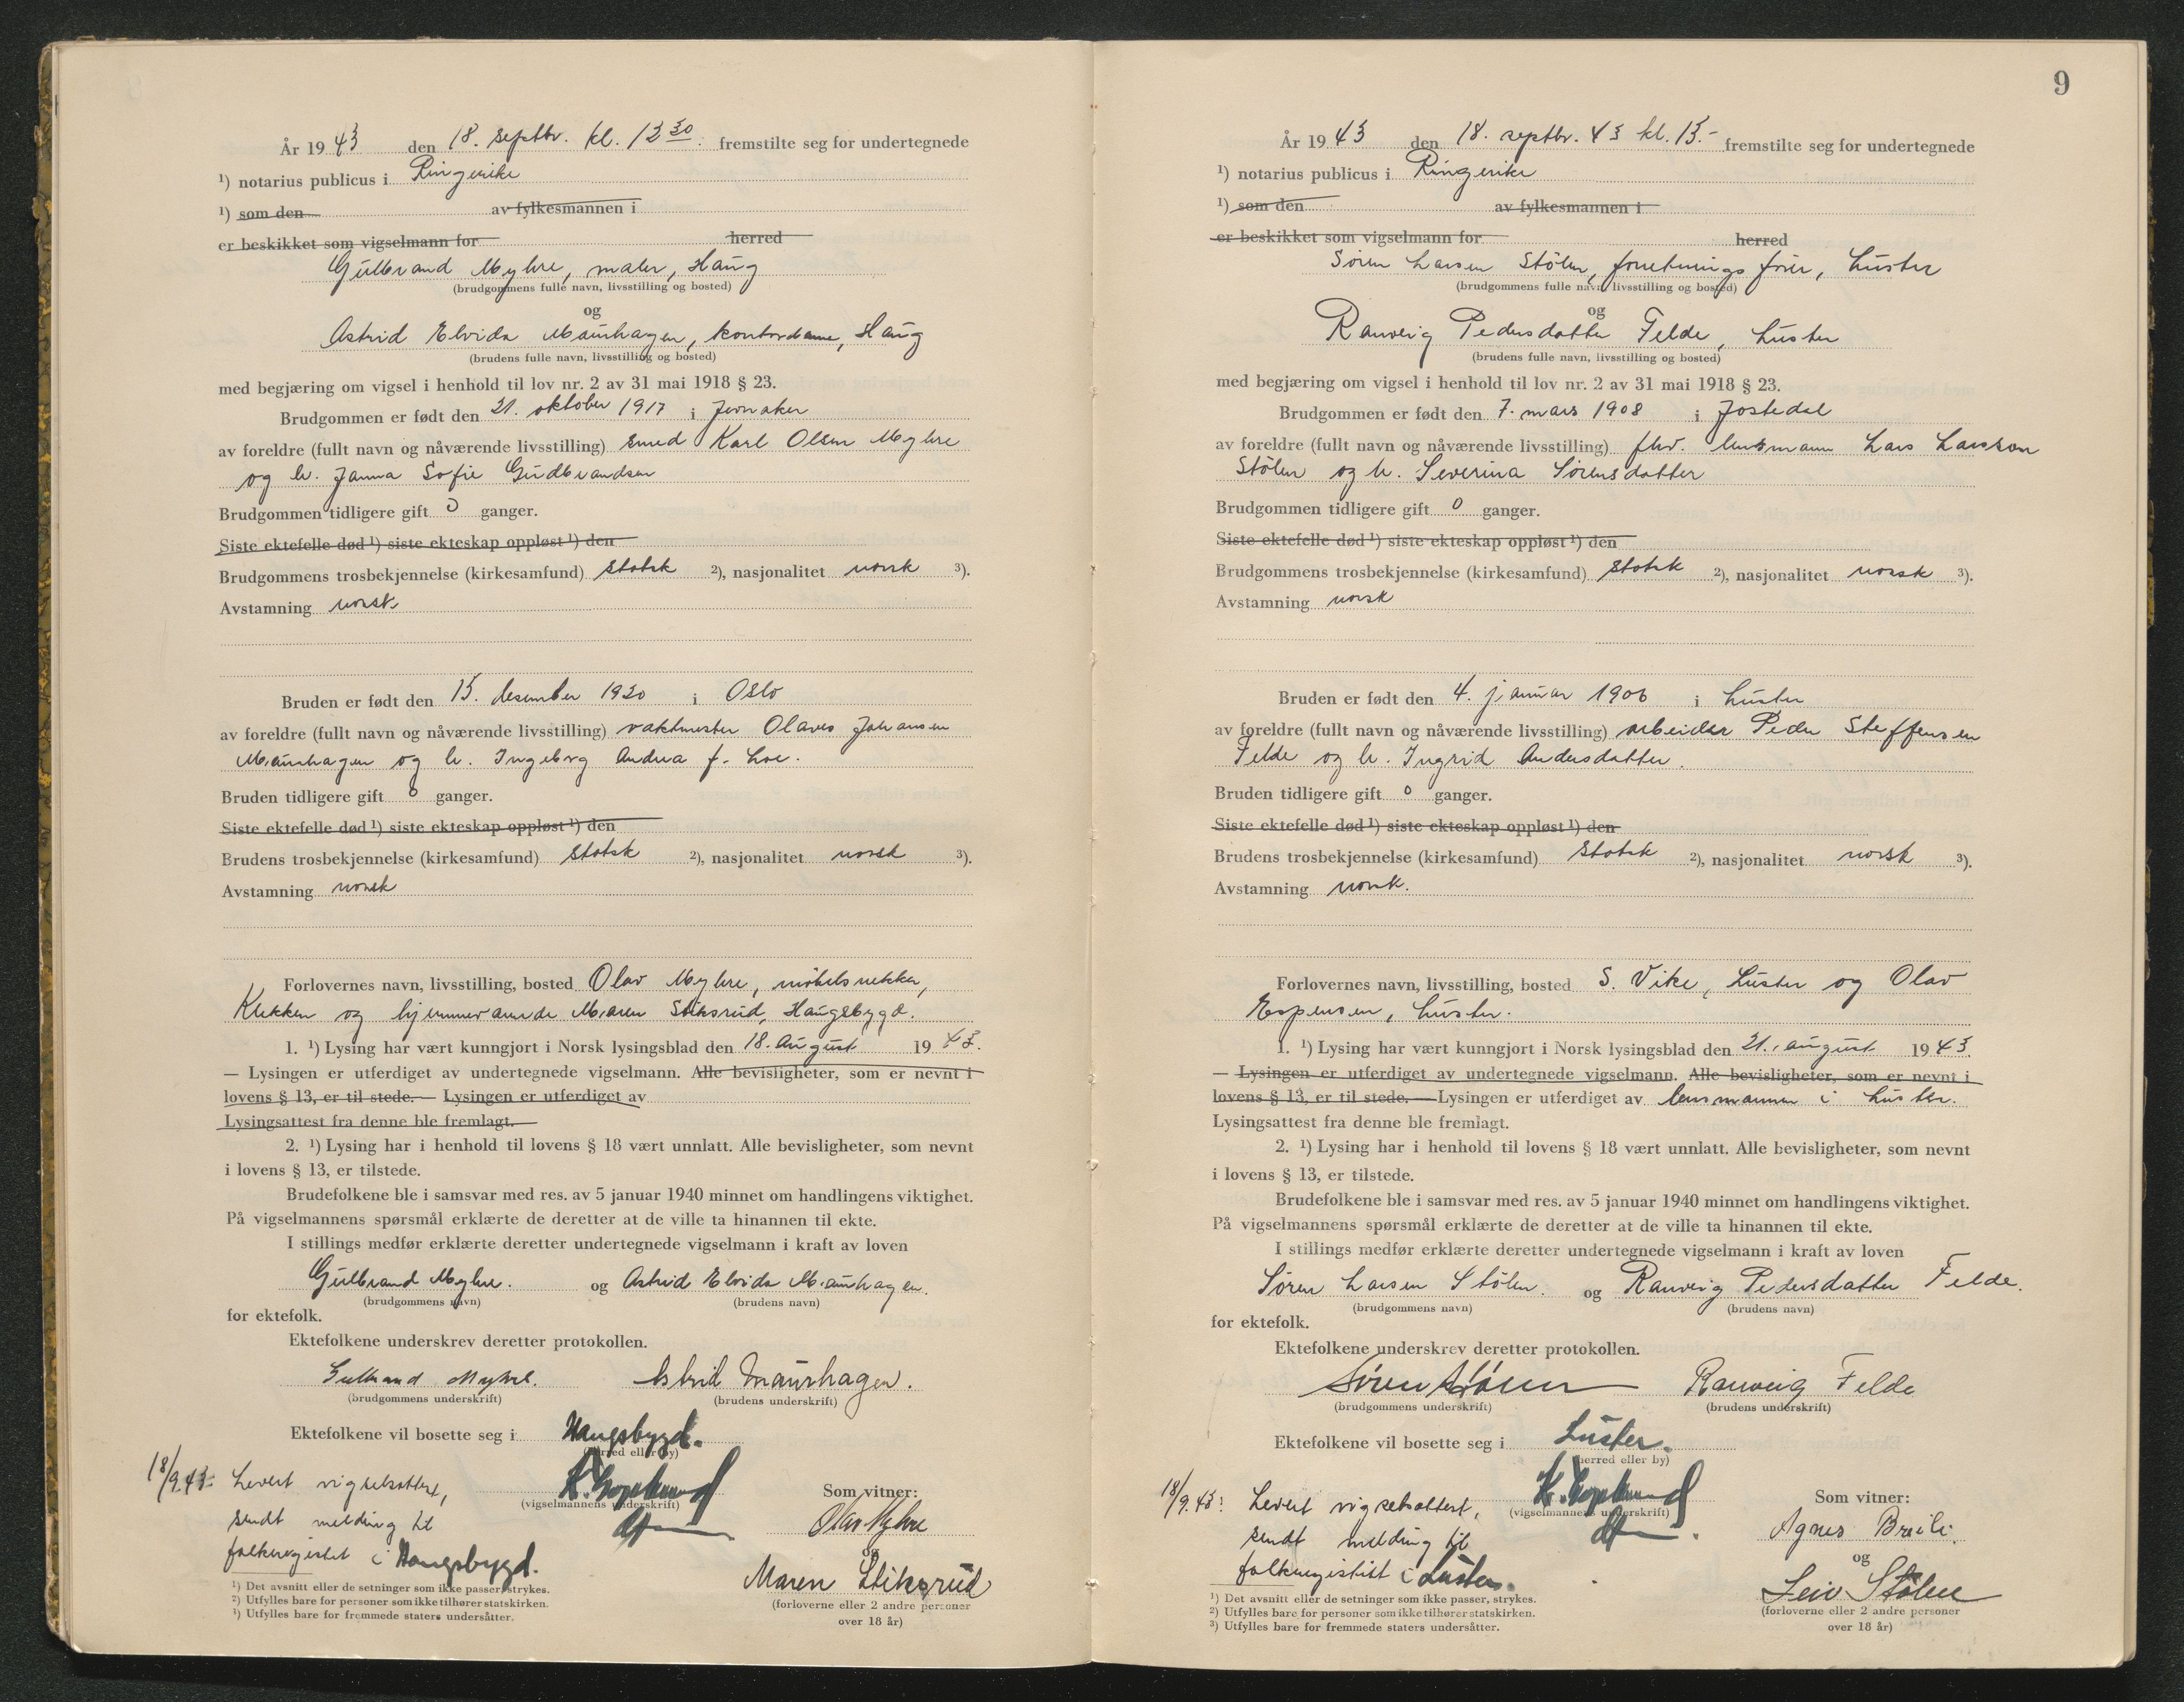 År 1943 den 18. septbr. kl. 12 30. fremstilte seg for undertegnede
¹) notarius publicus i Ringerike
¹) som den av fylkesmannen i
er beskikket som vigselmann for herred
Gulbrand Myhre, maler, Haug
(brudgommens fulle navn, livsstilling og bosted)
og
Astrid Elvida Maurhagen, kontordame, Haug
(brudens fulle navn, livsstilling og bosted)
med begjæring om vigsel i henhold til lov nr. 2 av 31 mai 1918 § 23.
Brudgommen er født den 21. oktober 1917 i Jevnaker
av foreldre (fullt navn og nåværende livsstilling) smed Karl Olsen Myhre
og h. Janna Sofie Gudbrandsen
Brudgommen tidligere gift 0 ganger.
Siste ektefelle død ¹) siste ekteskap oppløst ¹) den
Brudgommens trosbekjennelse (kirkesamfund) statsk ²), nasjonalitet norsk ³).
Avstamning norsk
Bruden er født den 15. desember 1920 i Oslo
av foreldre (fullt navn og nåværende livsstilling) vaktmester Olaves Johansen
Maurhagen og h. Ingeborg Andrea f. Loe.
Bruden tidligere gift 0 ganger.
Siste ektefelle død ¹) siste ekteskap oppløst ¹) den
Brudens trosbekjennelse (kirkesamfund) statsk ²), nasjonalitet norsk ³).
Avstamning norsk
Forlovernes navn, livsstilling, bosted Olav Myhre, møbelsnekker,
Klekken og hjemmeværende Maren Stiksrud, Haugsbygd.
1. ¹) Lysing har vært kunngjort i Norsk lysingsblad den 18. august 1943.
— Lysingen er utferdiget av undertegnede vigselmann. Alle bevisligheter, som er nevnt i
lovens § 13, er til stede. — Lysingen er utferdiget av
Lysingsattest fra denne ble fremlagt.
2. ¹) Lysing har i henhold til lovens § 18 vært unnlatt. Alle bevisligheter, som nevnt
i lovens § 13, er tilstede.
Brudefolkene ble i samsvar med res. av 5 januar 1940 minnet om handlingens viktighet.
På vigselmannens spørsmål erklærte de deretter at de ville ta hinannen til ekte.
I stillings medfør erklærte deretter undertegnede vigselmann i kraft av loven
Gulbrand Myhre. og Astrid Elvida Maurhagen.
(brudgommens navn) (brudens navn)
for ektefolk.
Ektefolkene underskrev deretter protokollen.
Gulbrand Myhre. Astrid Maurhagen.
(brudgommens underskrift) (brudens underskrift)
Ektefolkene vil bosette seg i Haugsbygd.
(herred eller by)
18/9.43: Levert vigselsattest,
(vigselmannens underskrift) Som vitner:
sendt melding til Olav Myhre
folkeregistet i Haugsbygd. og
Maren Stiksrud
(forloverne eller 2 andre personer
over 18 år)
¹) Det avsnitt eller de setninger som ikke passer, strykes.
²) Utfylles bare for personer som ikke tilhører statskirken.
³) Utfylles bare for fremmede staters undersåtter.
9
År 1943 den 18. septbr. 43 kl. 13.- fremstilte seg for undertegnede
¹) notarius publicus i Ringerike
¹) som den av fylkesmannen i
er beskikket som vigselmann for herred
Søren Larsen Stølen, forretningsfører, Luster
(brudgommens fulle navn, livsstilling og bosted)
og
Ranveig Pedersdatter Felde, Luster
(brudens fulle navn, livsstilling og bosted)
med begjæring om vigsel i henhold til lov nr. 2 av 31 mai 1918 § 23.
Brudgommen er født den 7. mars 1908 i Jostedal
av foreldre (fullt navn og nåværende livsstilling) fhv. lensmann Lars Larsson
Stølen og h. Severina Sørensdatter
Brudgommen tidligere gift 0 ganger.
Siste ektefelle død ¹) siste ekteskap oppløst ¹) den
Brudgommens trosbekjennelse (kirkesamfund) statsk ²), nasjonalitet norsk ³).
Avstamning norsk
Bruden er født den 4. januar 1906 i Luster
av foreldre (fullt navn og nåværende livsstilling) arbeider Peder Steffensen
Felde og h. Ingrid Andersdatter.
Bruden tidligere gift 0 ganger.
Siste ektefelle død ¹) siste ekteskap oppløst ¹) den
Brudens trosbekjennelse (kirkesamfund) statsk ²), nasjonalitet norsk ³).
Avstamning norsk.
Forlovernes navn, livsstilling, bosted S. Vike, Luster og Olav
Espensen, Luster.
1. ¹) Lysing har vært kunngjort i Norsk lysingsblad den 21. august 1943.
— Lysingen er utferdiget av undertegnede vigselmann. Alle bevisligheter, som er nevnt i
lovens § 13, er til stede. — Lysingen er utferdiget av lensmannen i Luster.
Lysingsattest fra denne ble fremlagt.
2. ¹) Lysing har i henhold til lovens § 18 vært unnlatt. Alle bevisligheter, som nevnt
i lovens § 13, er tilstede.
Brudefolkene ble i samsvar med res. av 5 januar 1940 minnet om handlingens viktighet.
På vigselmannens spørsmål erklærte de deretter at de ville ta hinannen til ekte.
I stillings medfør erklærte deretter undertegnede vigselmann i kraft av loven
Søren Larsen Stølen. og Ranveig Pedersdatter Felde.
(brudgommens navn) (brudens navn)
for ektefolk.
Ektefolkene underskrev deretter protokollen.
Søren Stølen Ranveig Felde
(brudgommens underskrift) (brudens underskrift)
Ektefolkene vil bosette seg i Luster.
(herred eller by)
18/9.43: Levert vigselsattest,
(vigselmannens underskrift) Som vitner:
sendt melding til Agnes Breili.
folkeregistet i Luster. og
Leiv Stølen
(forloverne eller 2 andre personer
over 18 år)
¹) Det avsnitt eller de setninger som ikke passer, strykes.
²) Utfylles bare for personer som ikke tilhører statskirken.
³) Utfylles bare for fremmede staters undersåtter.